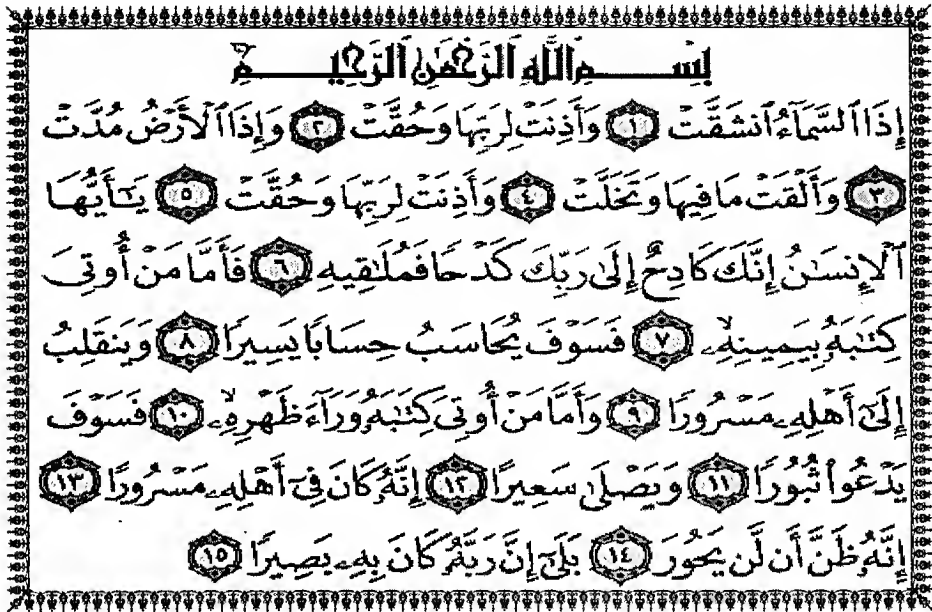 بِسْمِ ٱللَّهِ ٱلرَّحْمَٰنِ ٱلرَّحِيمِ
إِذَا ٱلسَّمَآءُ ٱنشَقَّتْ ١ وَأَذِنَتْ لِرَبِّهَا وَحُقَّتْ ٢ وَإِذَا ٱلْأَرْضُ مُدَّتْ
٣ وَأَلْقَتْ مَا فِيهَا وَتَخَلَّتْ ٤ وَأَذِنَتْ لِرَبِّهَا وَحُقَّتْ ٥ يَٰٓأَيُّهَا
ٱلْإِنسَٰنُ إِنَّكَ كَادِحٌ إِلَىٰ رَبِّكَ كَدْحًا فَمُلَٰقِيهِ ٦ فَأَمَّا مَنْ أُوتِىَ
كِتَٰبَهُۥ بِيَمِينِهِۦ ٧ فَسَوْفَ يُحَاسَبُ حِسَابًا يَسِيرًا ٨ وَيَنقَلِبُ
إِلَىٰٓ أَهْلِهِۦ مَسْرُورًا ٩ وَأَمَّا مَنْ أُوتِىَ كِتَٰبَهُۥ وَرَآءَ ظَهْرِهِۦ ١٠ فَسَوْفَ
يَدْعُوا۟ ثُبُورًا ١١ وَيَصْلَىٰ سَعِيرًا ١٢ إِنَّهُۥ كَانَ فِىٓ أَهْلِهِۦ مَسْرُورًا ١٣
إِنَّهُۥ ظَنَّ أَن لَّن يَحُورَ ١٤ بَلَىٰٓ إِنَّ رَبَّهُۥ كَانَ بِهِۦ بَصِيرًا ١٥